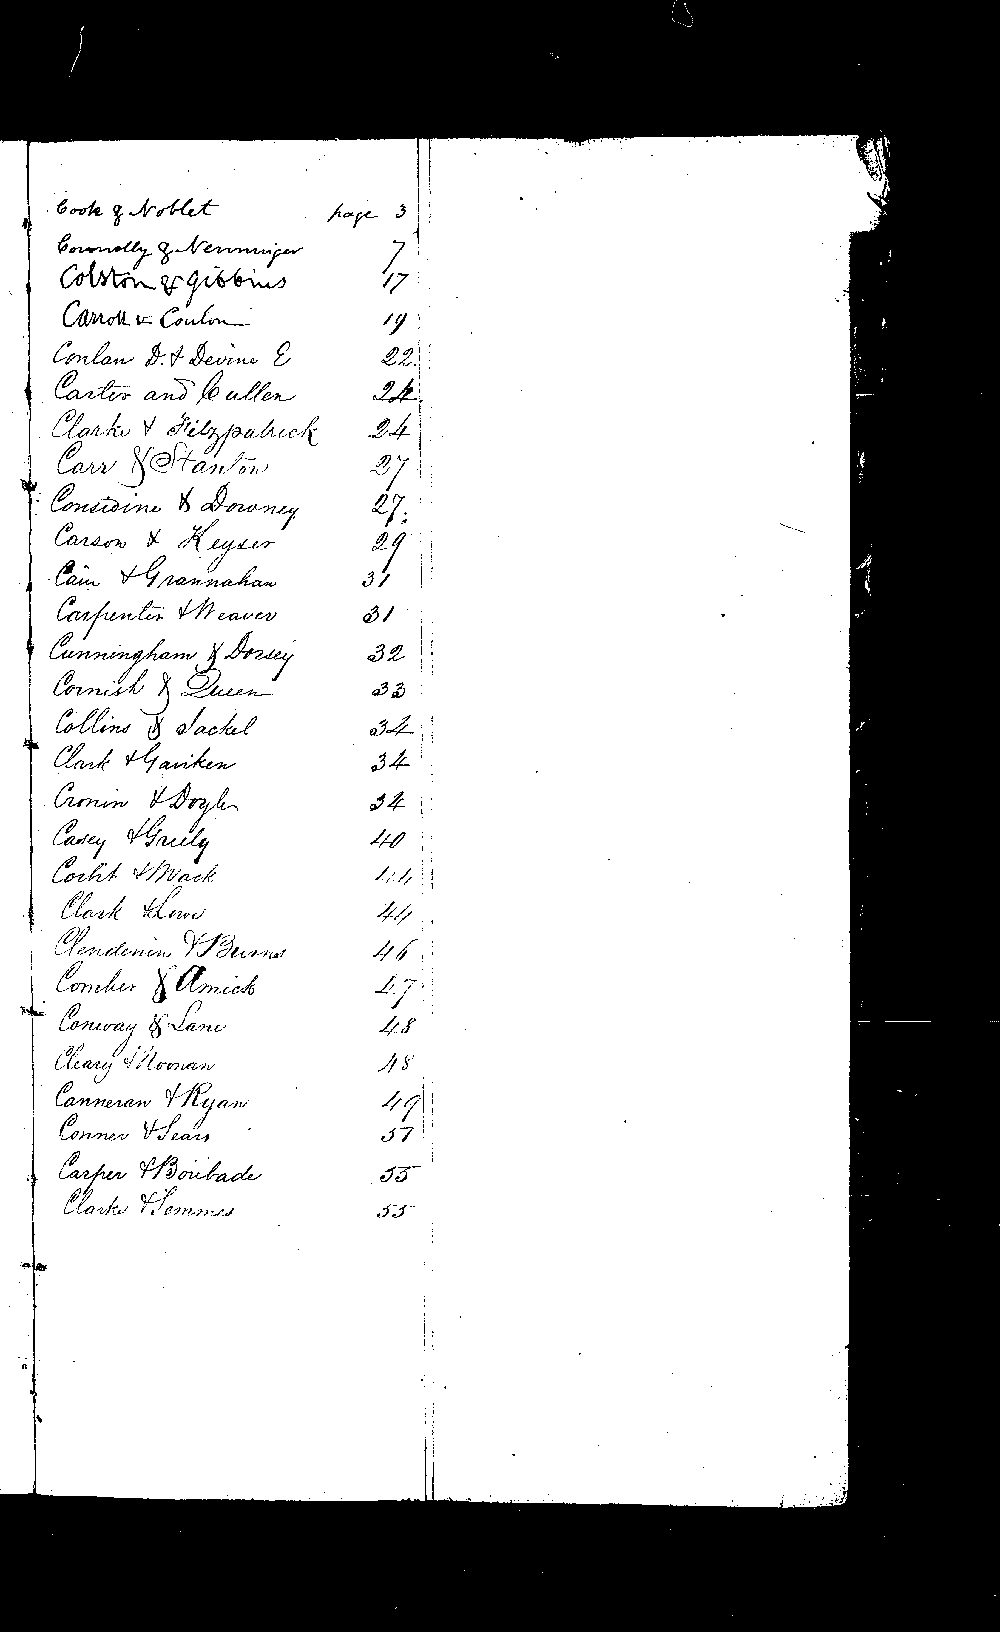 Cook & Noblet page 3
Connolly & Nenninger 7
Colston & Gibbins 17
Carroll & Coulon 19
Conlan D. & Devine E 22
Carter and Cullen 24
Clarke & Fitzpatrick 24
Carr & Stanton 27
Considine & Downey 27
Carson & Keyser 29
Cain & Grannahan 31
Carpenter & Weaver 31
Cunningham & Dorsey 32
Cornish & Queen 33
Collins & Jackel 34
Clark & Gaviken 34
Cronin & Doyle 34
Casey & Griely 40
& Mack 44
Clark & Lowe 44
Clendenin & Burns 46
Comber & Amick 47
Conway & Lane 48
Cleary & Noonan 48
Canneran & Ryan 49
Conner & Sears 51
Casper & Boribade 55
Clarke & Semmes 55